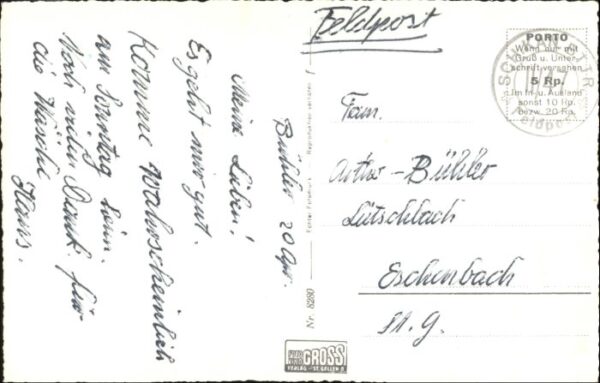 Bühler 20 Apr.
Meine Lieben!
Es geht mir gut.
Komme Wahrscheinlich
am Sonntag heim.
Noch vielen Dank für
die Wäsche
Hans.
Feldpost
PORTO
Wenn nur mit
Gruß u. Unter-
schrift versehen
5 Rp.
im In- u. Ausland
sonst 10 Rp.
bezw. 20 Rp.
Feldpost
Fam.
Arthur - Bühler
Lütschbach
Eschenbach
St. G.
Nr. 8280
GROSS
VERLAG - ST. GALLEN